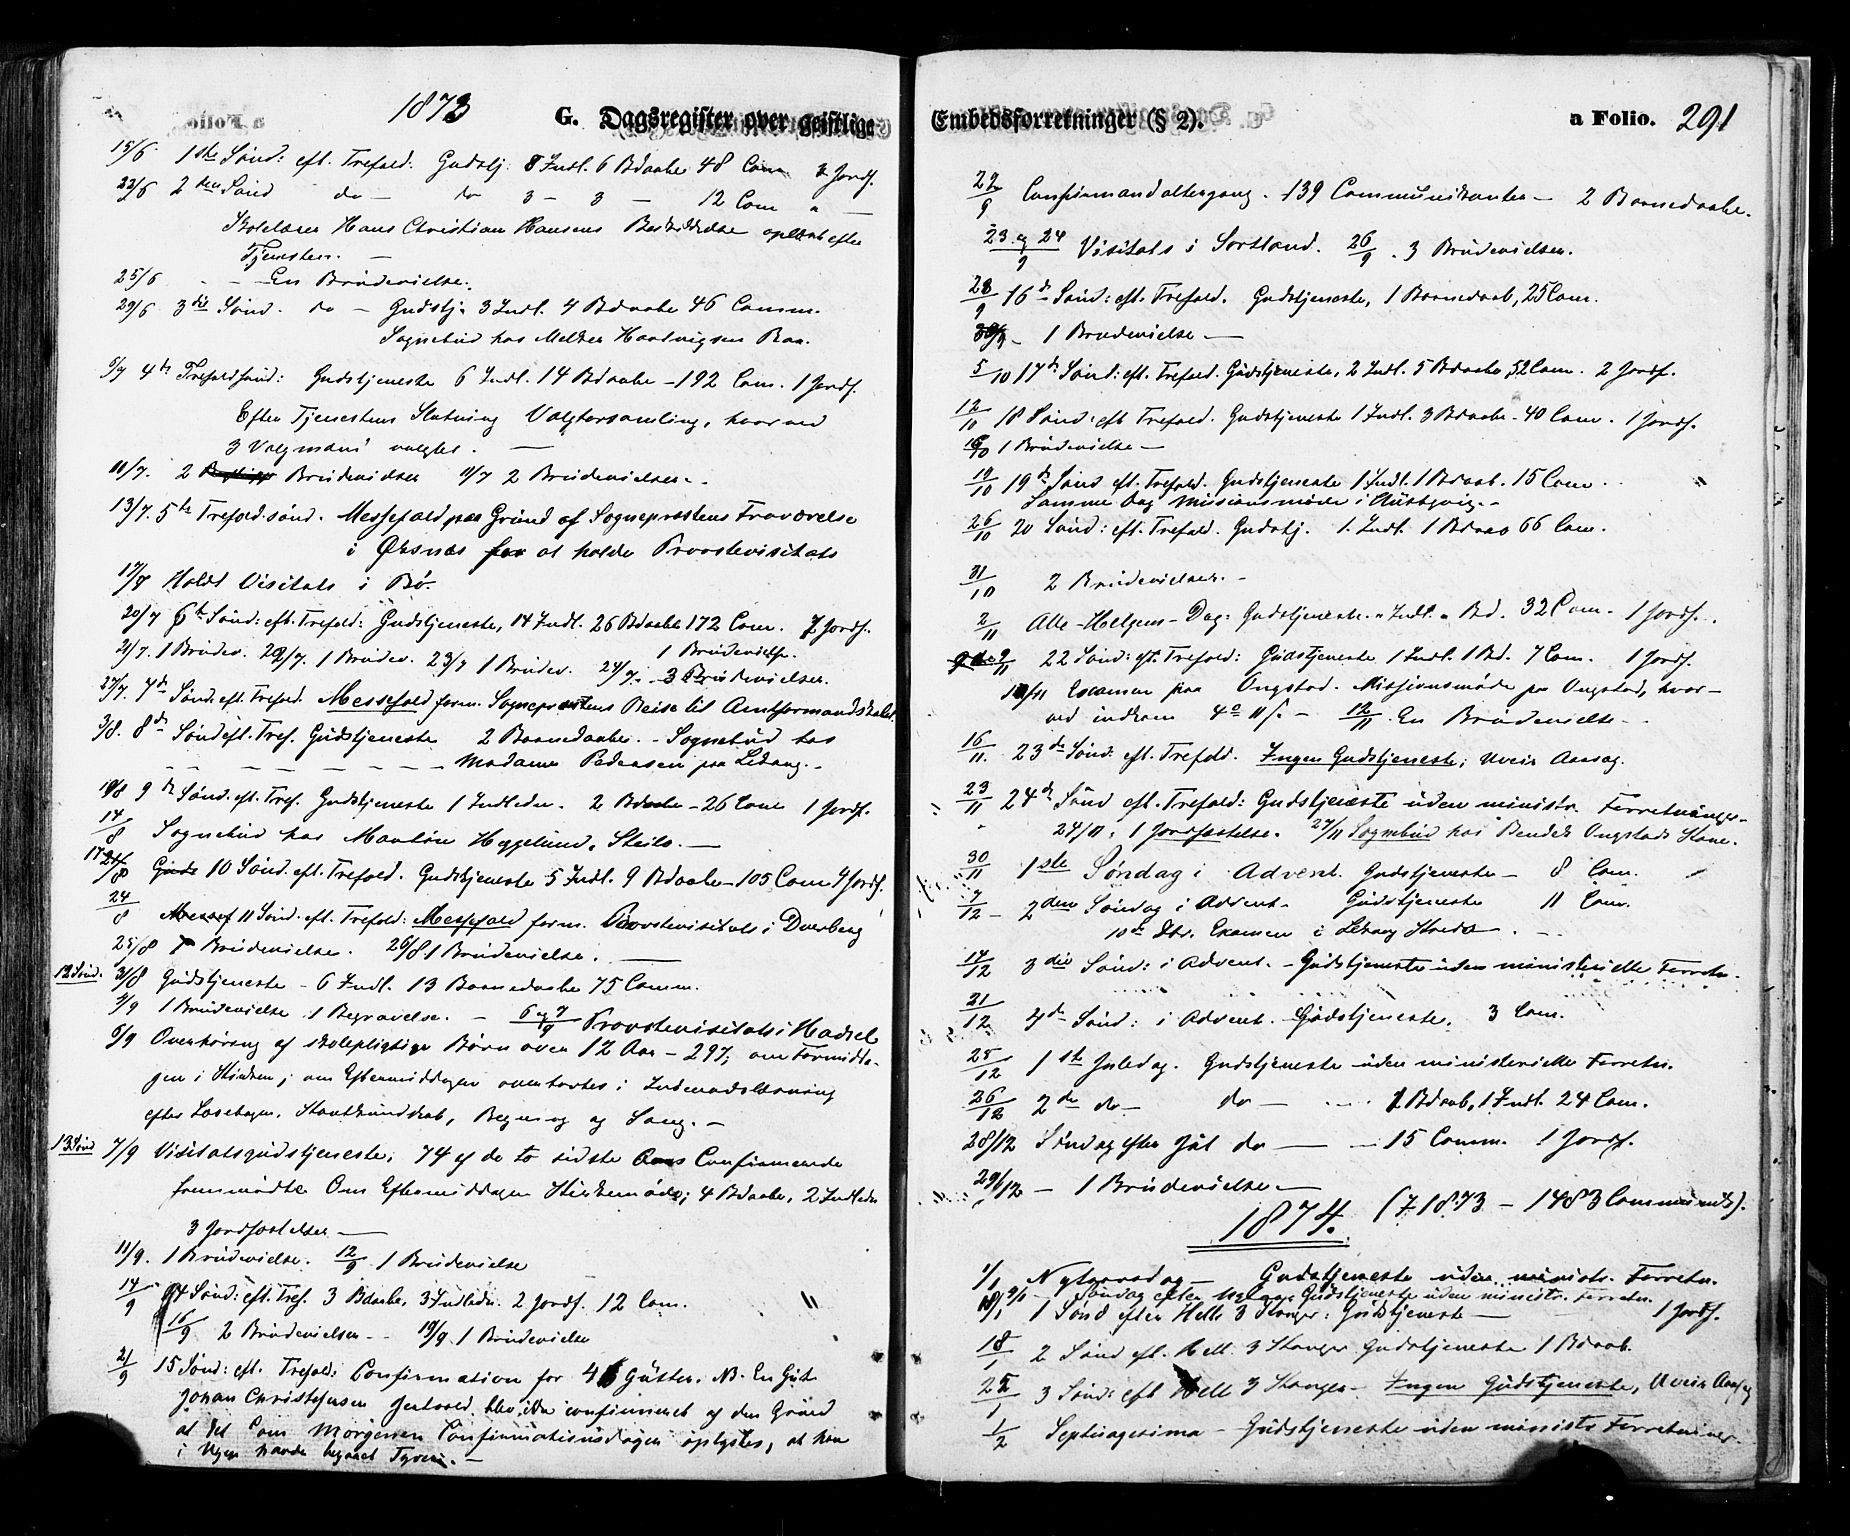 1873 G. Dagsregister over geistlige
15/6 1ste Sönd: eft. Trefold: Gudstj. 8 Indl. 6 Bdaabe 48 Com 2 Jordf.
22/6 2den Sönd do — do 3 — 3 — 12 Com " —
Skolelærer Hans Christian Hansens Beskikkelse oplæst efter
Tjenesten. —
25/6 - - En Brudevielse.
29/6 3die Sönd. do — Gudstj. 3 Indl. 4 Bdaabe 46 Comm.
Sognebud hos Melder Haatvigsen Raa.
6/7 4de Trefoldsönd: Gudstjeneste 6 Indl. 14 Bdaabe — 192 Com. 1 Jordf.
Efter Tjenestens Slutning Valgforsamling, hvorved
3 Valgmænd valgtes. —
10/7. 2 Brudevielser 11/7 2 Brudevielser. -
13/7. 5te Trefold. sönd. Messefald paa Grund af Sogneprestens Fraværelse
i Öksnæs for at holde Provstevisitats
17/7 Holdt Visitats i Bö.
20/7 6te Sönd: eft. Trefold: Gudstjeneste, 14 Indl. 26 Bdaabe 172 Com. 7 Jordf.
21/7. 1 Brudev. 22/7. 1 Brudev. 23/7 1 Brudev. 24/7. 3 Brudevielser. 1 Brudevielse.
27/7. 7de Sönd. eft. Trefold. Messefald form. Sogneprestens Reise til Amtformandskabet
3/8. 8de Sönd eft. Tref. Gudstjeneste 2 Barnedaabe. - Sognebud hos
— — — — — — Madame Pedersen paa Lekang. -
10/8 9de Sönd. eft. Tref. Gudstjeneste 1 Indleden. 2 Bdaabe — 26 Com 1 Jordf.
14/8 Sognebud hos Hyggelund, Steilo. —
17/8 10 Sönd. eft. Trefold. Gudstjeneste 5 Indl. 9 Bdaabe — 105 Com 4 Jordf.
24/8 Messef 11 Sönd. eft. Trefold: Messefald form. Provstevisitats i Dverberg
25/8 1 Brudevielse. 26/8 1 Brudevielse. —
12 Sönd. 31/8 Gudstjeneste — 6 Indl. 13 Barnedaabe 75 Comm.
4/9 1 Brudevielse 1 Begravelse. — 6 og 7/9 Provstevisitats i Hadsel
6/9 Overhöring af skolepligtige Börn over 12 Aar — 297; om Formidda-
gen i Kirken; om Eftermiddagen overhörtes i Indenadslæsning
efter Læsebogen, Skriftkundskab, Regning og Sang. —
13 Sönd 7/9 Visitatsgudstjeneste; 74 af de to sidste Aars Confirmerede
fremmödte Om Eftermiddagen Kirkemöde; 4 Bdaabe, 2 Indleden
3 Jordfæstelser —
11/9. 1 Brudevielse. 12/9 1 Brudevielse
14/9 14 Sönd: eft. Tref. 3 Bdaabe, 3 Indledn. 2 Jordf. 12 Com.
16/9 2 Brudevielser - - 19/9. 1 Brudevielse
21/9 15 Sönd: eft. Trefold: Confirmation for 46 Gutter. NB. En Gut
Johan Christensen blev ikke confirmeret af den Grund
at det om Morgenen Confirmationsdagen oplystes, at han
i Ugen havde begaaet Tyveri. —
Embedsforretninger (§ 2). a Folio. 291
22/9 Confirmandaltergang. 139 Communikanter — 2 Barnedaabe.
23 og 24/9 Visitats i Sortland. 26/9. 3 Brudevielser.
28/9 16de Sönd: eft. Trefold. Gudstjeneste, 1 Barnedaab, 25 Com.
30/9 — 1 Brudevielse —
5/10 17de Sönd: eft. Trefold. Gudstjeneste, 2 Indl. 5 Bdaabe 52 Com. 2 Jordf.
12/10 18 Sönd: eft Trefold. Gudstjeneste 1 Indl. 3 Bdaabe - 40 Com. 1 Jordf.
1 Brudevielse —
19/10 19de Sönd eft. Trefold. Gudstjeneste 1 Indl. 1 Bdaab. 15 Com. "
Samme Dag Missionsmöde i
26/10 20 Sönd: eft. Trefold. Gudstj. 1. Indl. 1 Bdaab 66 Com.
31/10 2 Brudevielser. -
2/11 Alle-Helgens-Dag: Gudstjeneste. " Indl. " Bd. 32 Com. 1 Jordf.
9/11 22 Sönd: eft. Trefold: Gudstjeneste 1 Indl. 1 Bd. 7 Com. 1 Jordf.
10/11 Examen paa Ongstad. Missionsmöde paa Ongstad, hvor-
ved indkom — 12/11 En Brudevielse —
16/11. 23de Sönd: eft. Trefold. Ingen Gudstjeneste; Uveir Aarsag.
23/11 24de Sönd eft. Trefold: Gudstjeneste uden ministr. Forretninger.
24/11, 1 Jordfæstelse. 27/11 Sognebud hos Bendik Ongstads Kone.
30/11 1ste Söndag i Advent. Gudstjeneste — 8 Com.
7/12 — 2den Söndag i Advent. Gudstjeneste 11 Com.
10de Dbr. Examen i Lekang Kreds —
14/12 3die Sönd: i Advent. — Gudstjeneste uden ministerielle Forretn.
21/12 4de Sönd: i Advent. Gudstjeneste. 3 Com.
25/12 1ste Juledag. Gudstjeneste uden ministerielle Forretn.
26/12 2den do — do — 1 Bdaab, 1 Indl. 24 Com.
28/12 Söndag efter Jul do — 15 Comm. 1 Jordf.
29/12 — 1 Brudevielse —
1874. (I 1873 — 1483 Communik).
1/1 Nytaarsdag — Gudstjeneste uden ministr. Forretn.
4/1 — Söndag efter Nytaar: Gudstjeneste uden ministr. Forretn.
11/1 1 Sönd efter Hell 3 Konger: Gudstjeneste — 1 Jordf.
18/1 2 Sönd eft. Hell. 3 Konger Gudstjeneste 1 Bdaab.
25/1 3 Sönd: eft Hell 3 Konger — Ingen Gudstjeneste, Uveir Aarsag
1/2 Septuagesima — Gudstjeneste uden ministr Forretninger.